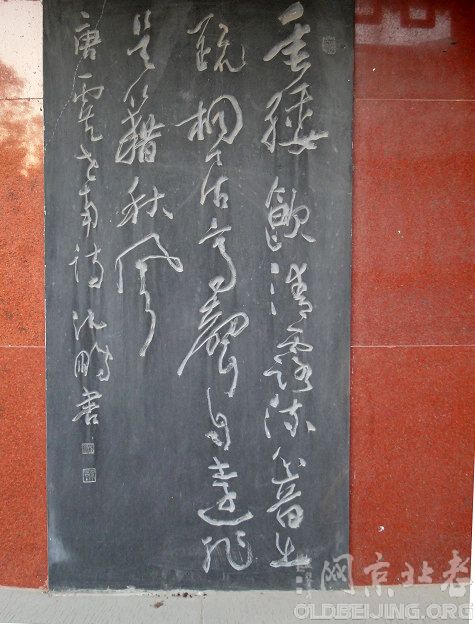 垂緌飲清露流響出
疏桐居高聲自遠非
是籍秋風
唐虞世南詩 沈鵬書
老北京网
OLDBEIJING.ORG